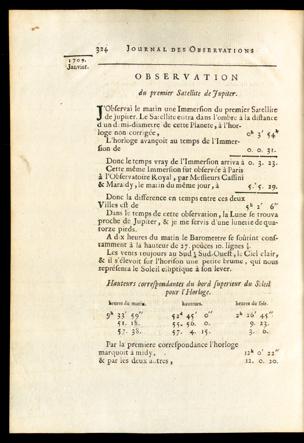 1709.
Janvier.
324 JOURNAL DES OBSERVATIONS
OBSERVATION
du premier Satellite de Jupiter.
J'Observai le matin une Immersion du premier Satellite
de Jupiter. Le Satellite entra dans l'ombre à la distance
d'un demi-diametre de cette Planete, à l'hor-
loge non corrigée, 0h 3' 54"
L'horloge avançoit au temps de l'Immer-
sion de 0. 0. 31.
Donc le temps vray de l'Immersion arriva à 0. 3. 23.
Cette même Immersion fut observée à Paris
à l'Observatoire Royal, par Messieurs Cassini
& Maraldy, le matin du même jour, à 5. 5. 29.
Donc la difference en temps entre ces deux
Villes est de 5h 2' 6"
Dans le temps de cette observation, la Lune se trouva
proche de Jupiter, & je me servis d'une lunete de qua-
torze pieds.
A dix heures du matin le Barometre se soûtint cons-
tamment à la hauteur de 27. pouces 10. lignes
Les vents toujours au Sud Sud-Ouest, le Ciel clair,
& il s'élevoit sur l'horison une petite brume, qui nous
représenta le Soleil eliptique à son lever.
Hauteurs correspondantes du bord superieur du Soleil
pour l'Horloge.
heures du matin. hauteurs. heures du soir.
9h 33' 59" 52d 45' 0" 2h 26' 45"
51. 18. 55. 56. 0. 9. 23.
57. 38. 57. 4. 15. 3. 6.
Par la premiere correspondance l'horloge
marquoit à midy, 12h 0' 22"
& par les deux autres, 12. 0. 20.